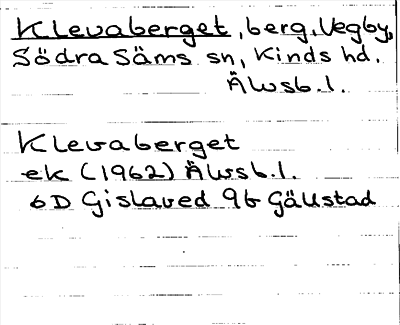 Klevaberget, berg, Vegby,
Södra Säms sn, Kinds hd.
Älvsb. l.
Klevaberget
ek (1962) Älvsb. l.
6D Gislaved 9b Gällstad